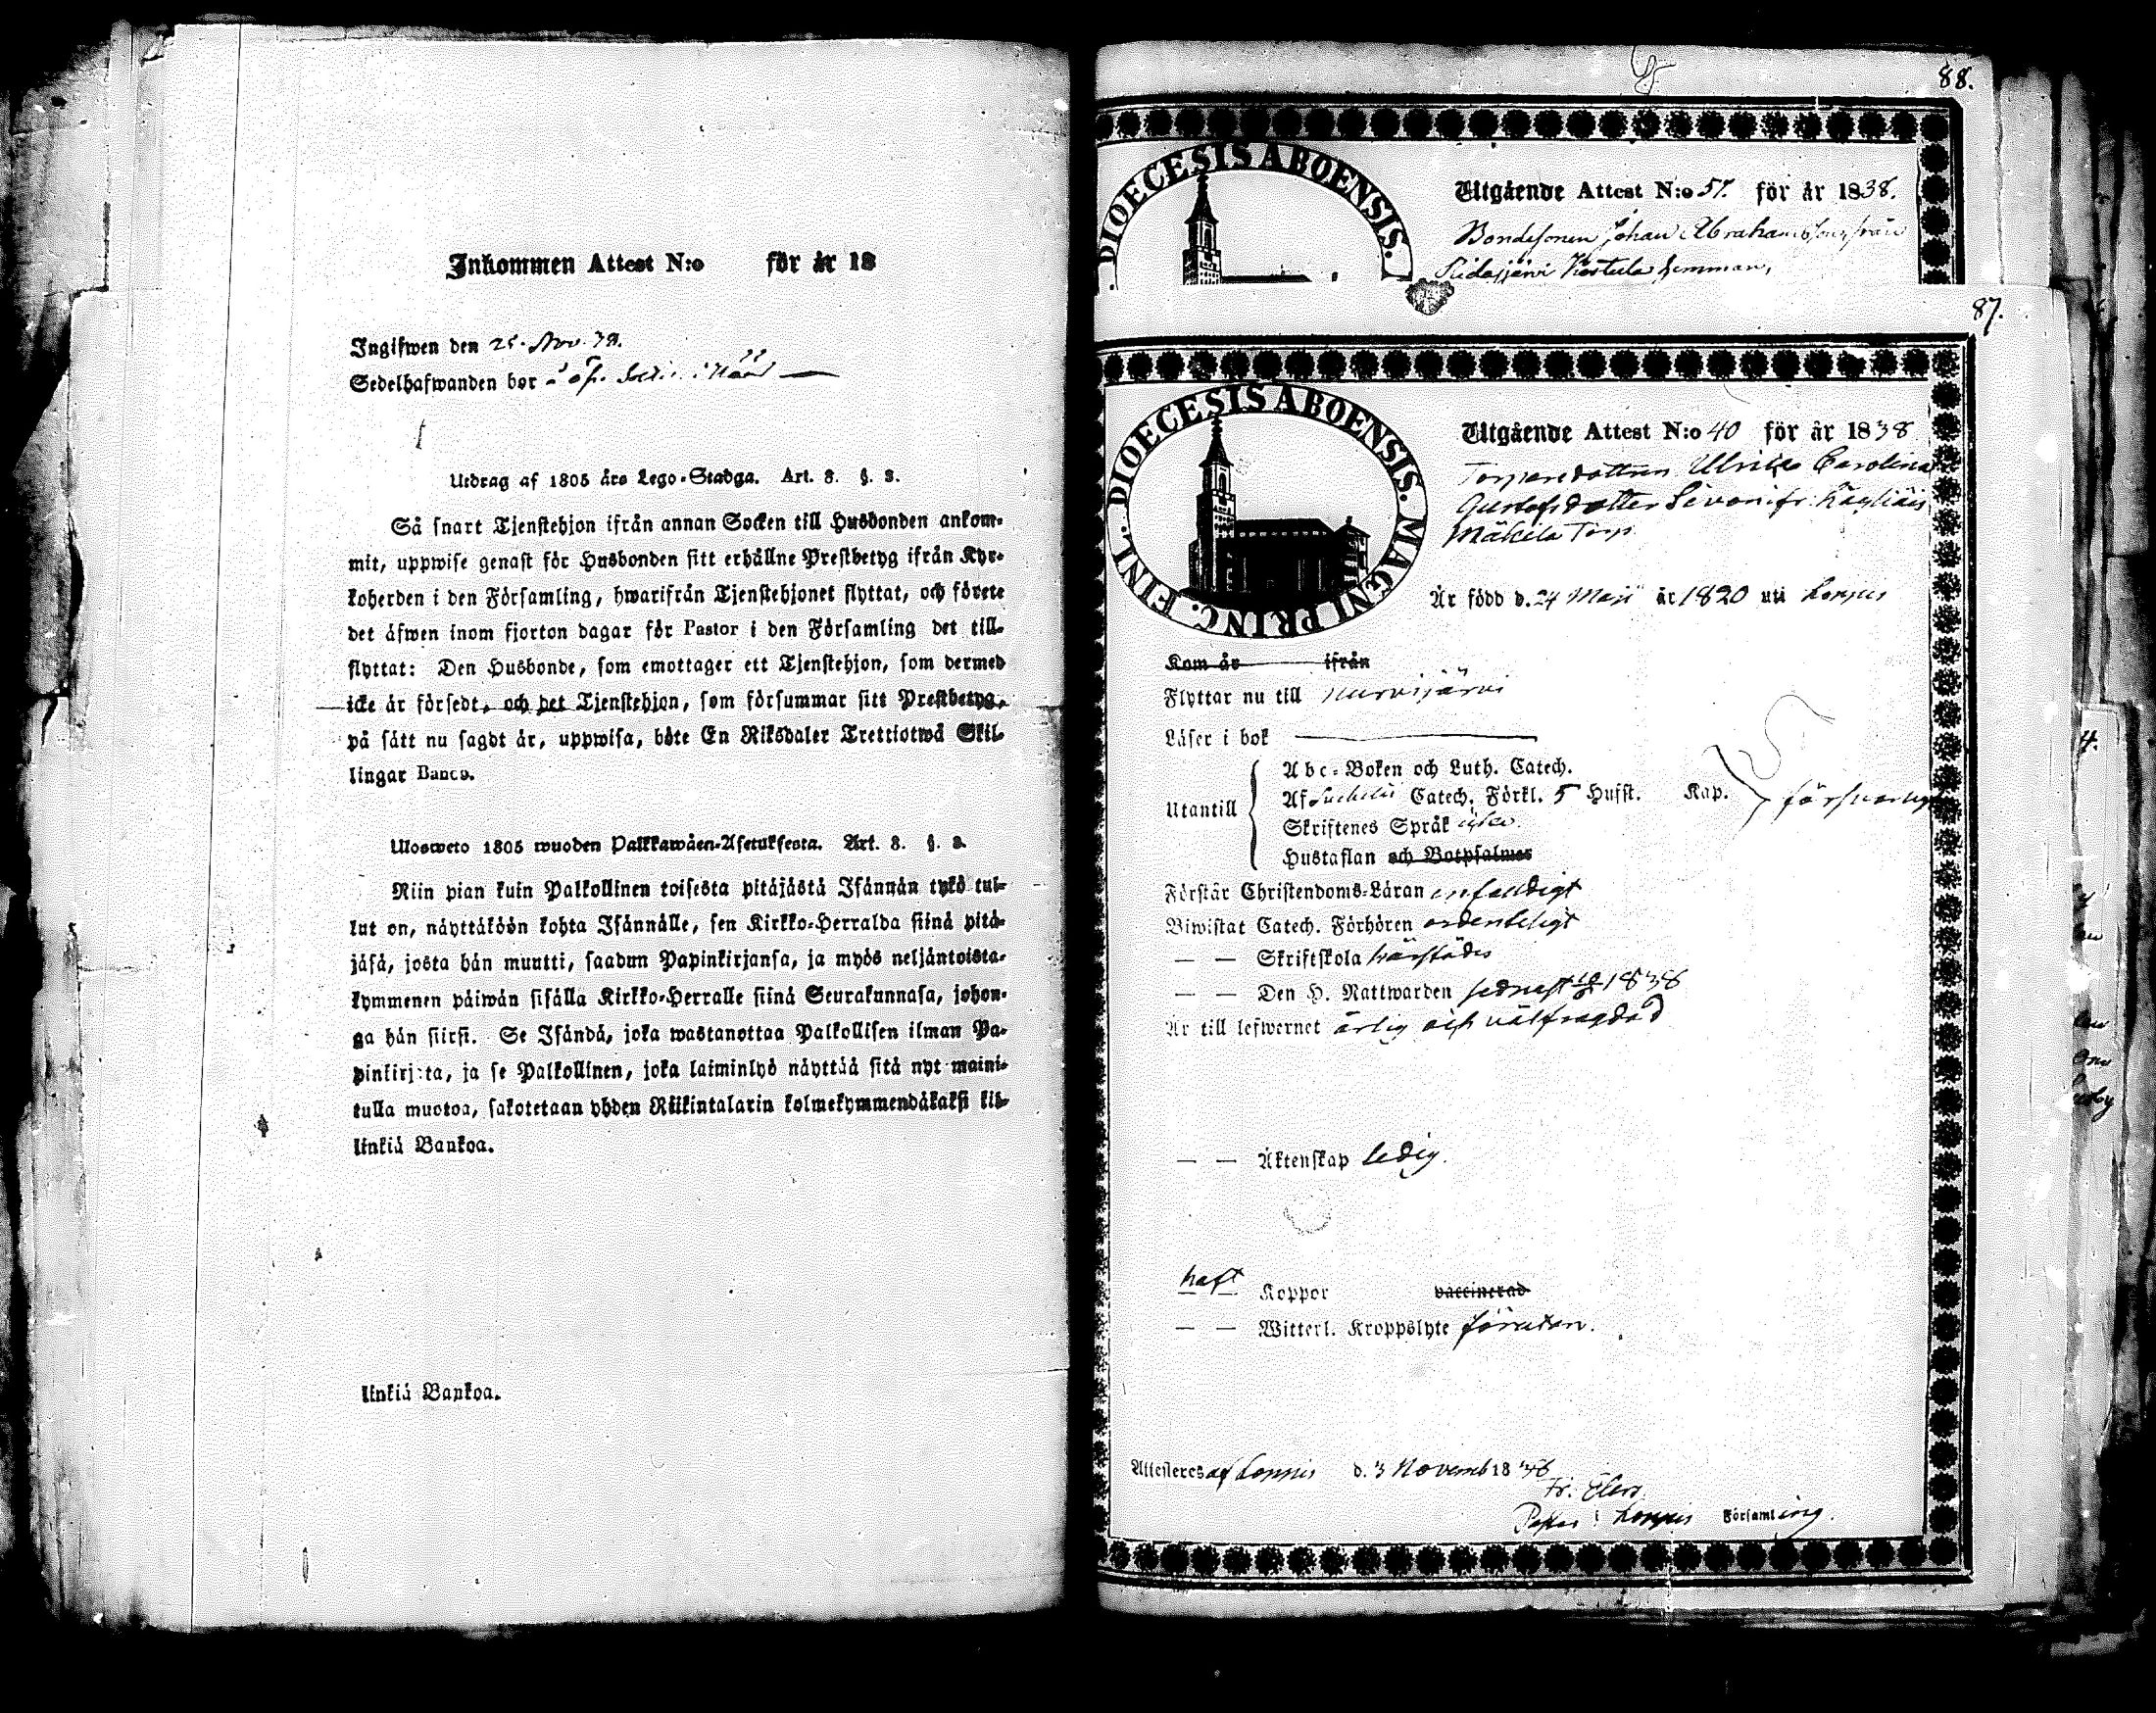 Inkommen Attest N:o för år 18
Ingifwen den 25. Nov. 38.
Sedelhafwanden bor
Utdrag af 1805 års Lego-Stadga. Art. 8. §. 3.
Så snart Tjenstehjon ifrån annan Socken till Husbonden ankom-
mit, uppwise genast för Husbonden sitt erhållne Prestbetyg ifrån Kyr-
koherden i den Församling, hwarifrån Tjenstehjonet flyttat, och förete
det äfwen inom fjorton dagar för Pastor i den Församling det till-
flyttat: Den Husbonde, som emottager ett Tjenstehjon, som dermed
icke är försedt, och det Tjenstehjon, som försummar sitt Prestbetyg,
på sätt nu sagdt är, uppwisa, böte En Riksdaler Trettiotwå Skil-
lingar Banco.
Uloswето 1805 wuoden Palkkawäen-Asetuksesta. Art. 8. §. 3.
Niin pian kuin Palkollinen toisesta pitäjästä Isännän tykö tul-
lut on, näyttäköön kohta Isännälle, sen Kirkko-Herralda siinä pitä-
jäsä, josta hän muutti, saadun Papinkirjansa, ja myös neljäntoista-
kymmenen päiwän sisällä Kirkko-Herralle siinä Seurakunnasa, johon-
ga hän siirsi. Se Isändä, joka wastanottaa Palkollisen ilman Pa-
pinkirjata, ja se Palkollinen, joka laiminlyö näyttää sitä nyt maini-
tulla muotoa, sakotetaan yhden Riikintalarin kolmekymmendäkaksi kil-
linkiä Bankoa.
linkiä Bankoa.
88.
DIOECESIS ABOENSIS.
Utgående Attest N:o 57. för år 1838.
Bondesonen Johan Abrahamsson, från
Kostula hemman,
87.
DIOECESIS ABOENSIS. MAGNI PRINC. FINL.
Utgående Attest N:o 40 för år 1838
Torparedottren Ulrika Carolina
Gustafsdotter
Mäkilä Torp
Är född d. 24 Maji år 1820 uti Loppis
Kom år ifrån
Flyttar nu till Nurmijärvi
Läser i bok
Abc-Boken och Luth. Catech.
Utantill Af Catech. Förkl. 5 Hufst. Kap. försvarligt
Skriftenes Språk
Hustaflan och Botpsalmer
Förstår Christendoms-Läran enfaldigt
Biwistat Catech. Förhören ordenteligt
— — Skriftskola härstädes
— — Den H. Nattwarden sednast 1838
Är till lefwernet ärlig och välfrägdad
— — Äktenskap ledig.
haft
— — Koppor vaccinerad
— — Witterl. Kroppslyte förutan.
Attesteres af Loppis d. 3 Novemb 1838
Fr. Elers.
Pastor i Loppis Församling.